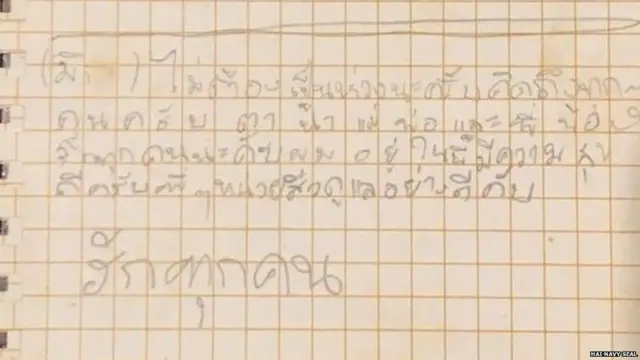 (มิ ) ไม่ต้องเป็นห่วงนะครับ คิดถึงทุก
คนครับ ตา น้า แม่ พ่อ และ พี่ น้อง
รักทุกคนนะคับผม อยู่ ในนี้มีความสุข
ดีครับพี่ๆหน่วยซีลดูแลอย่างดีคับ
รักทุกคน
HAI NAVY SEAL